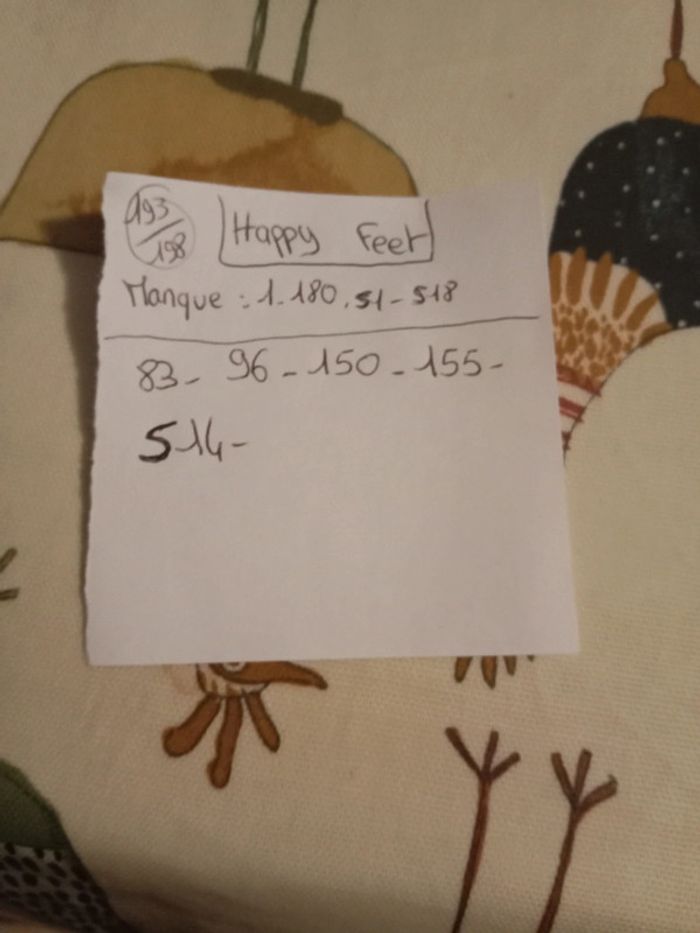 193/198
Happy Feet
Manque : 1-180.S1-S18
83- 96-150-155-
S14-